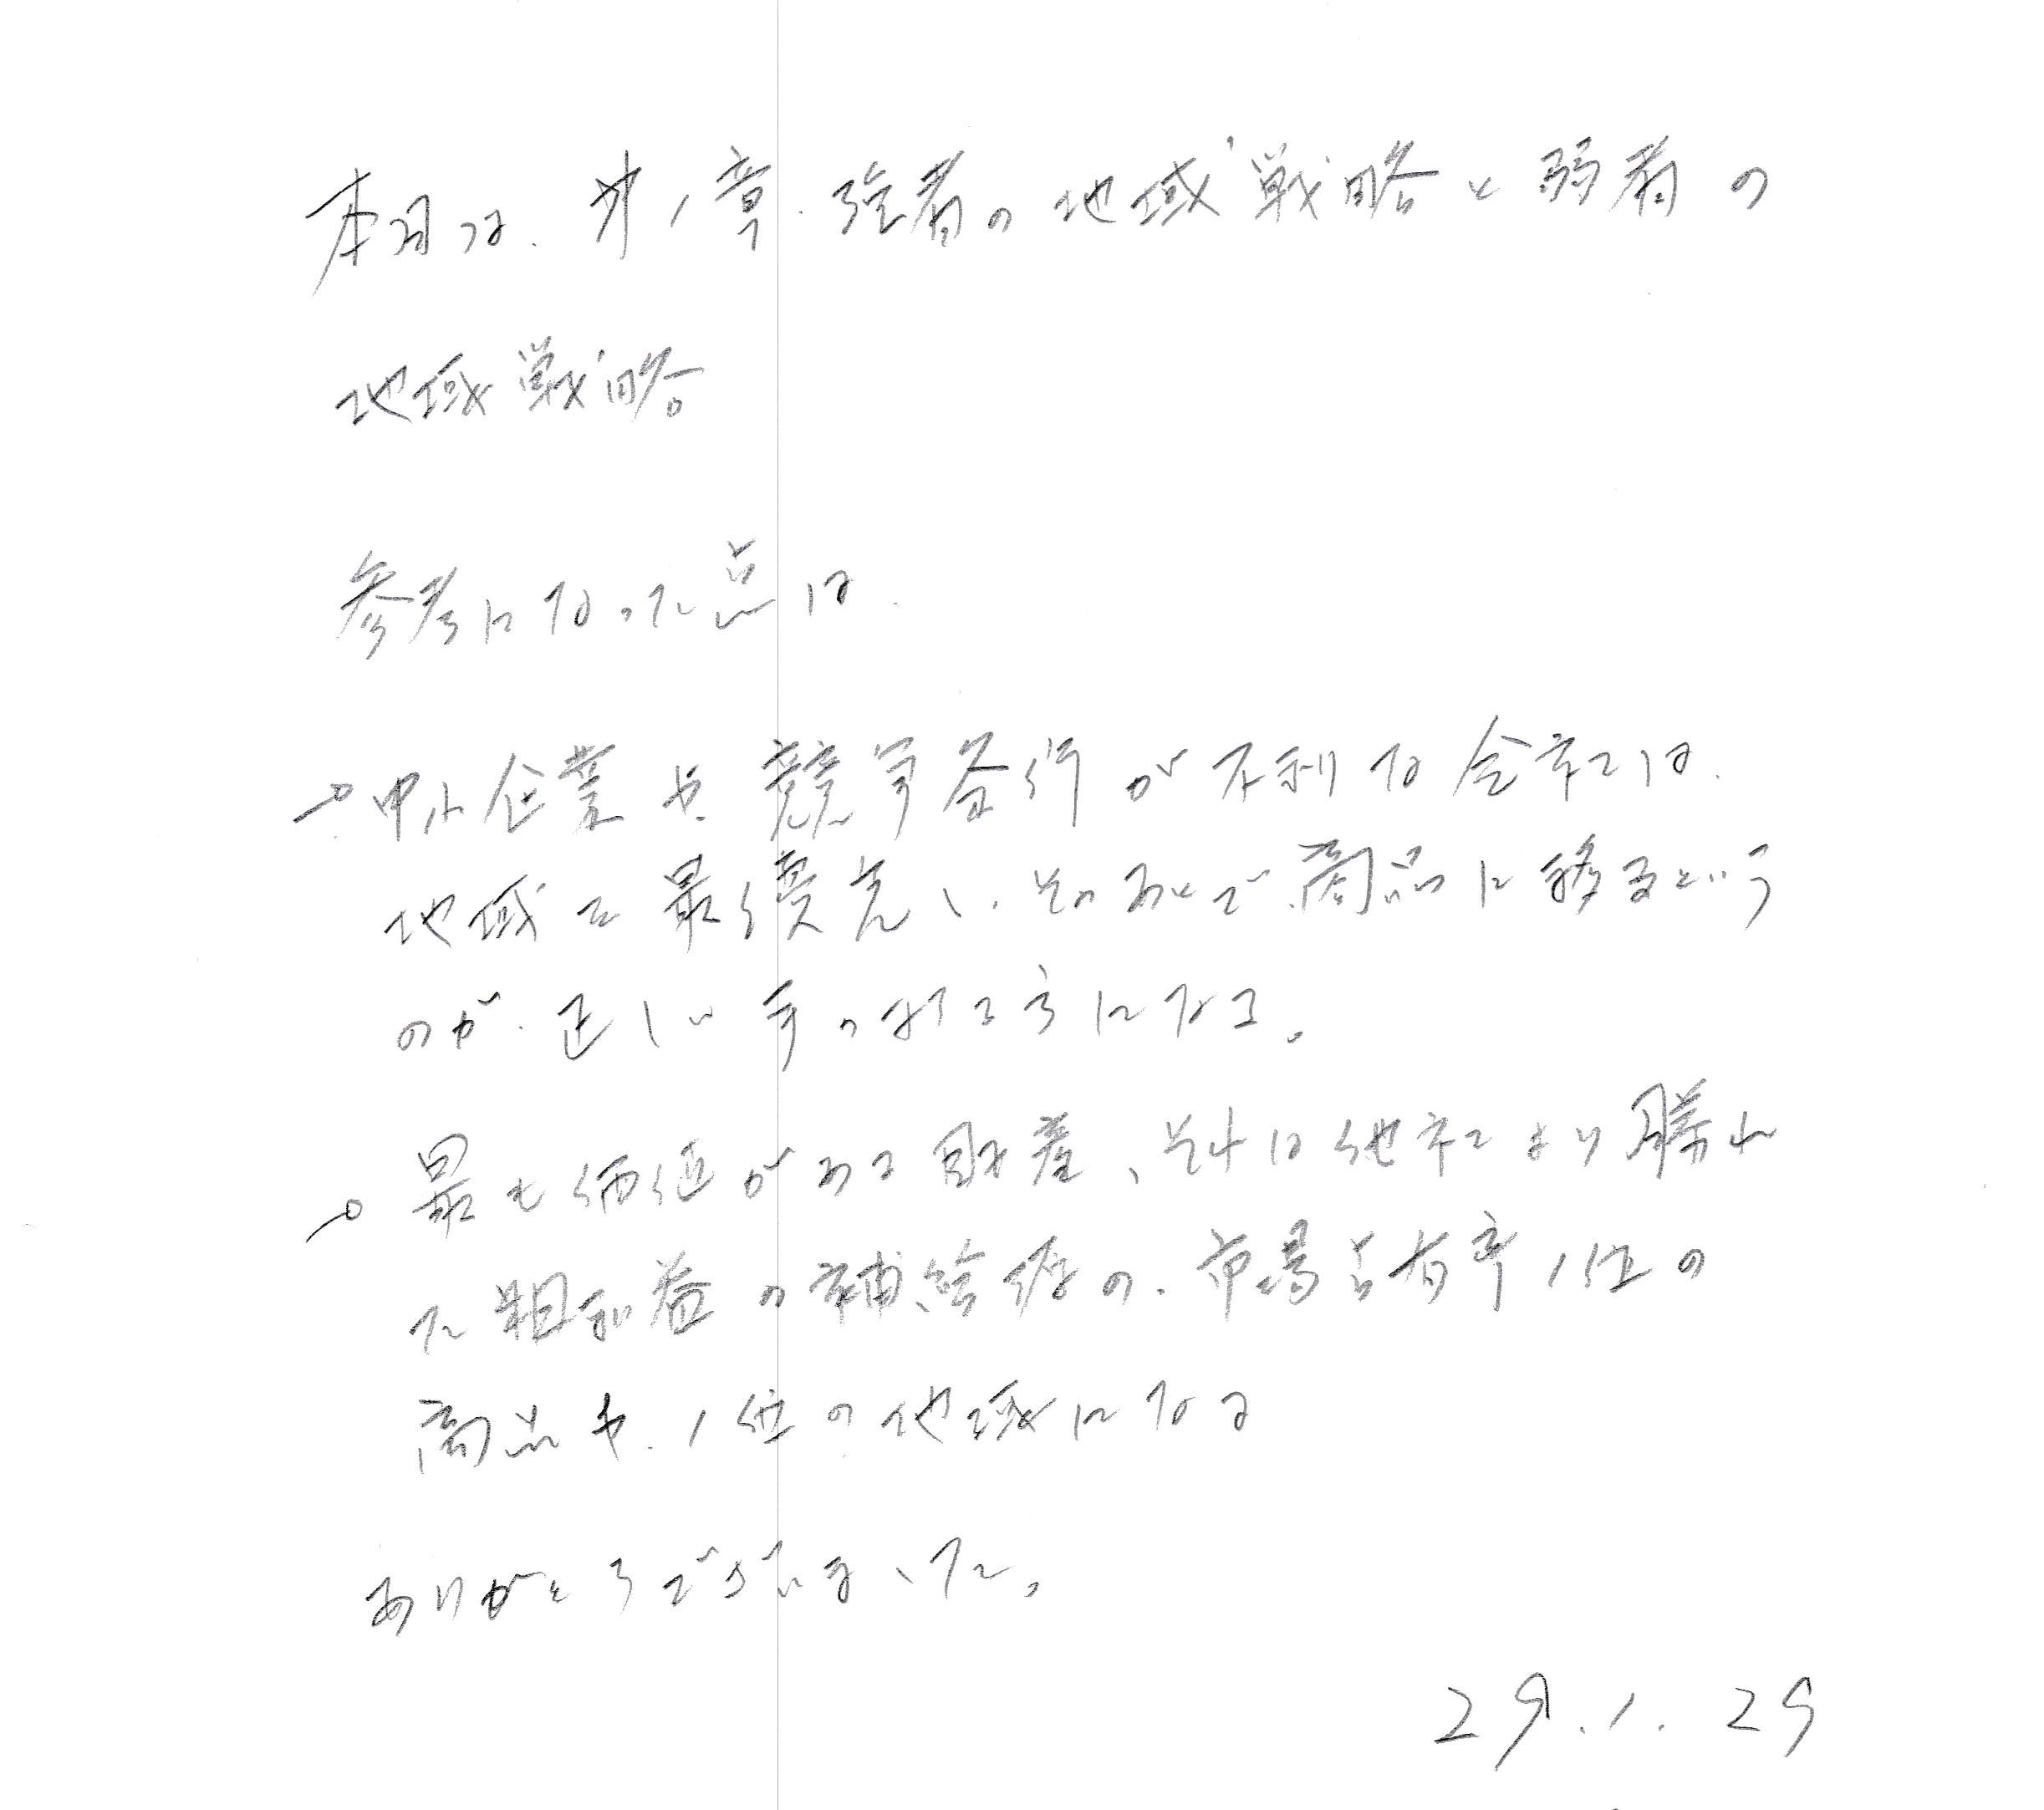 本日は、第1章 強者の地域戦略と弱者の
地域戦略
参考になった点は、
→○中小企業や競争条件が不利な会社では、
地域を最優先し、そのあとで商品に移るという
のが、正しい手の打ち方になる。
→○最も価値がある財産、それは他社より勝れ
た粗利益の補給源の、市場占有率1位の
商品や、1位の地域になる
ありがとうございました。
29.1.29